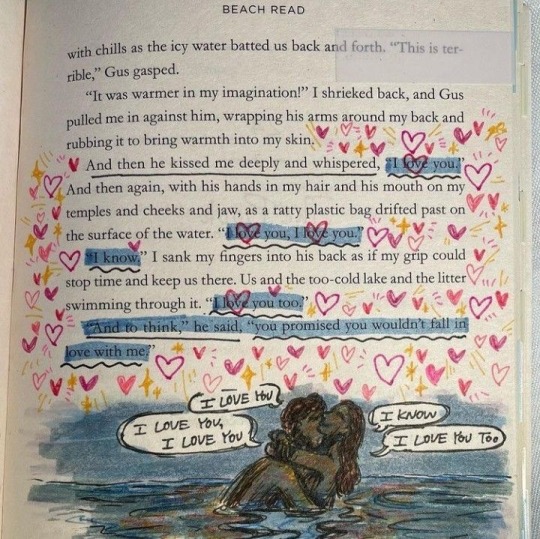 BEACH READ
with chills as the icy water batted us back and forth. “This is ter-
rible,” Gus gasped.
“It was warmer in my imagination!” I shrieked back, and Gus
pulled me in against him, wrapping his arms around my back and
rubbing it to bring warmth into my skin.
And then he kissed me deeply and whispered, “I love you.”
And then again, with his hands in my hair and his mouth on my
temples and cheeks and jaw, as a ratty plastic bag drifted past on
the surface of the water. “I love you, I love you.”
“I know.” I sank my fingers into his back as if my grip could
stop time and keep us there. Us and the too-cold lake and the litter
swimming through it. “I love you too.”
“And to think,” he said, “you promised you wouldn’t fall in
love with me.”
I LOVE YOU
I LOVE YOU,
I LOVE YOU
I KNOW
I LOVE YOU TOO